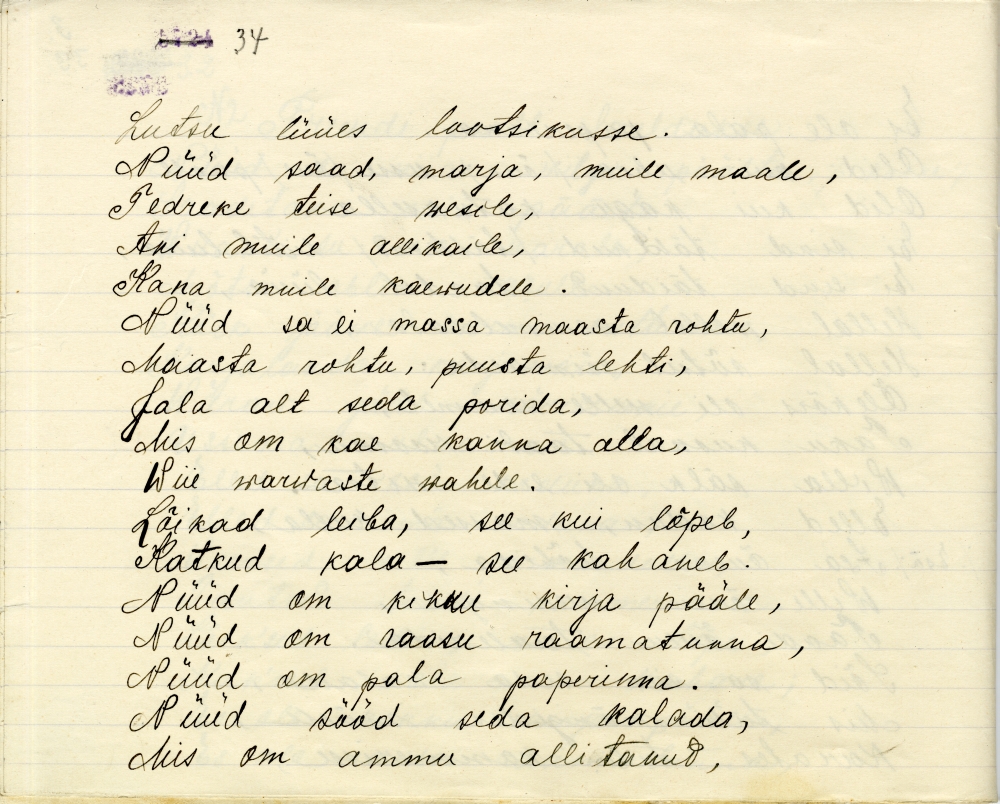 34
Lutsu lüües lootsikusse.
Nüüd saad, marja, muile maale,
Tedreke teise wesile,
Ani muile allikaile,
Kana muile kaewudele.
Nüüd sa ei massa maasta rohtu,
Maasta rohtu, puusta lehti,
Jala alt seda porida,
Mis om kae kanna alla,
Wiie warwaste wahele.
Lõikad leiba, see kui lõpeb,
Katkud kala — see kah aneb.
Nüüd om kikku kirja pääle,
Nüüd om raasu raamatunna,
Nüüd om pala paperinna.
Nüüd sööd seda kalada,
Mis om ammu allitanud,